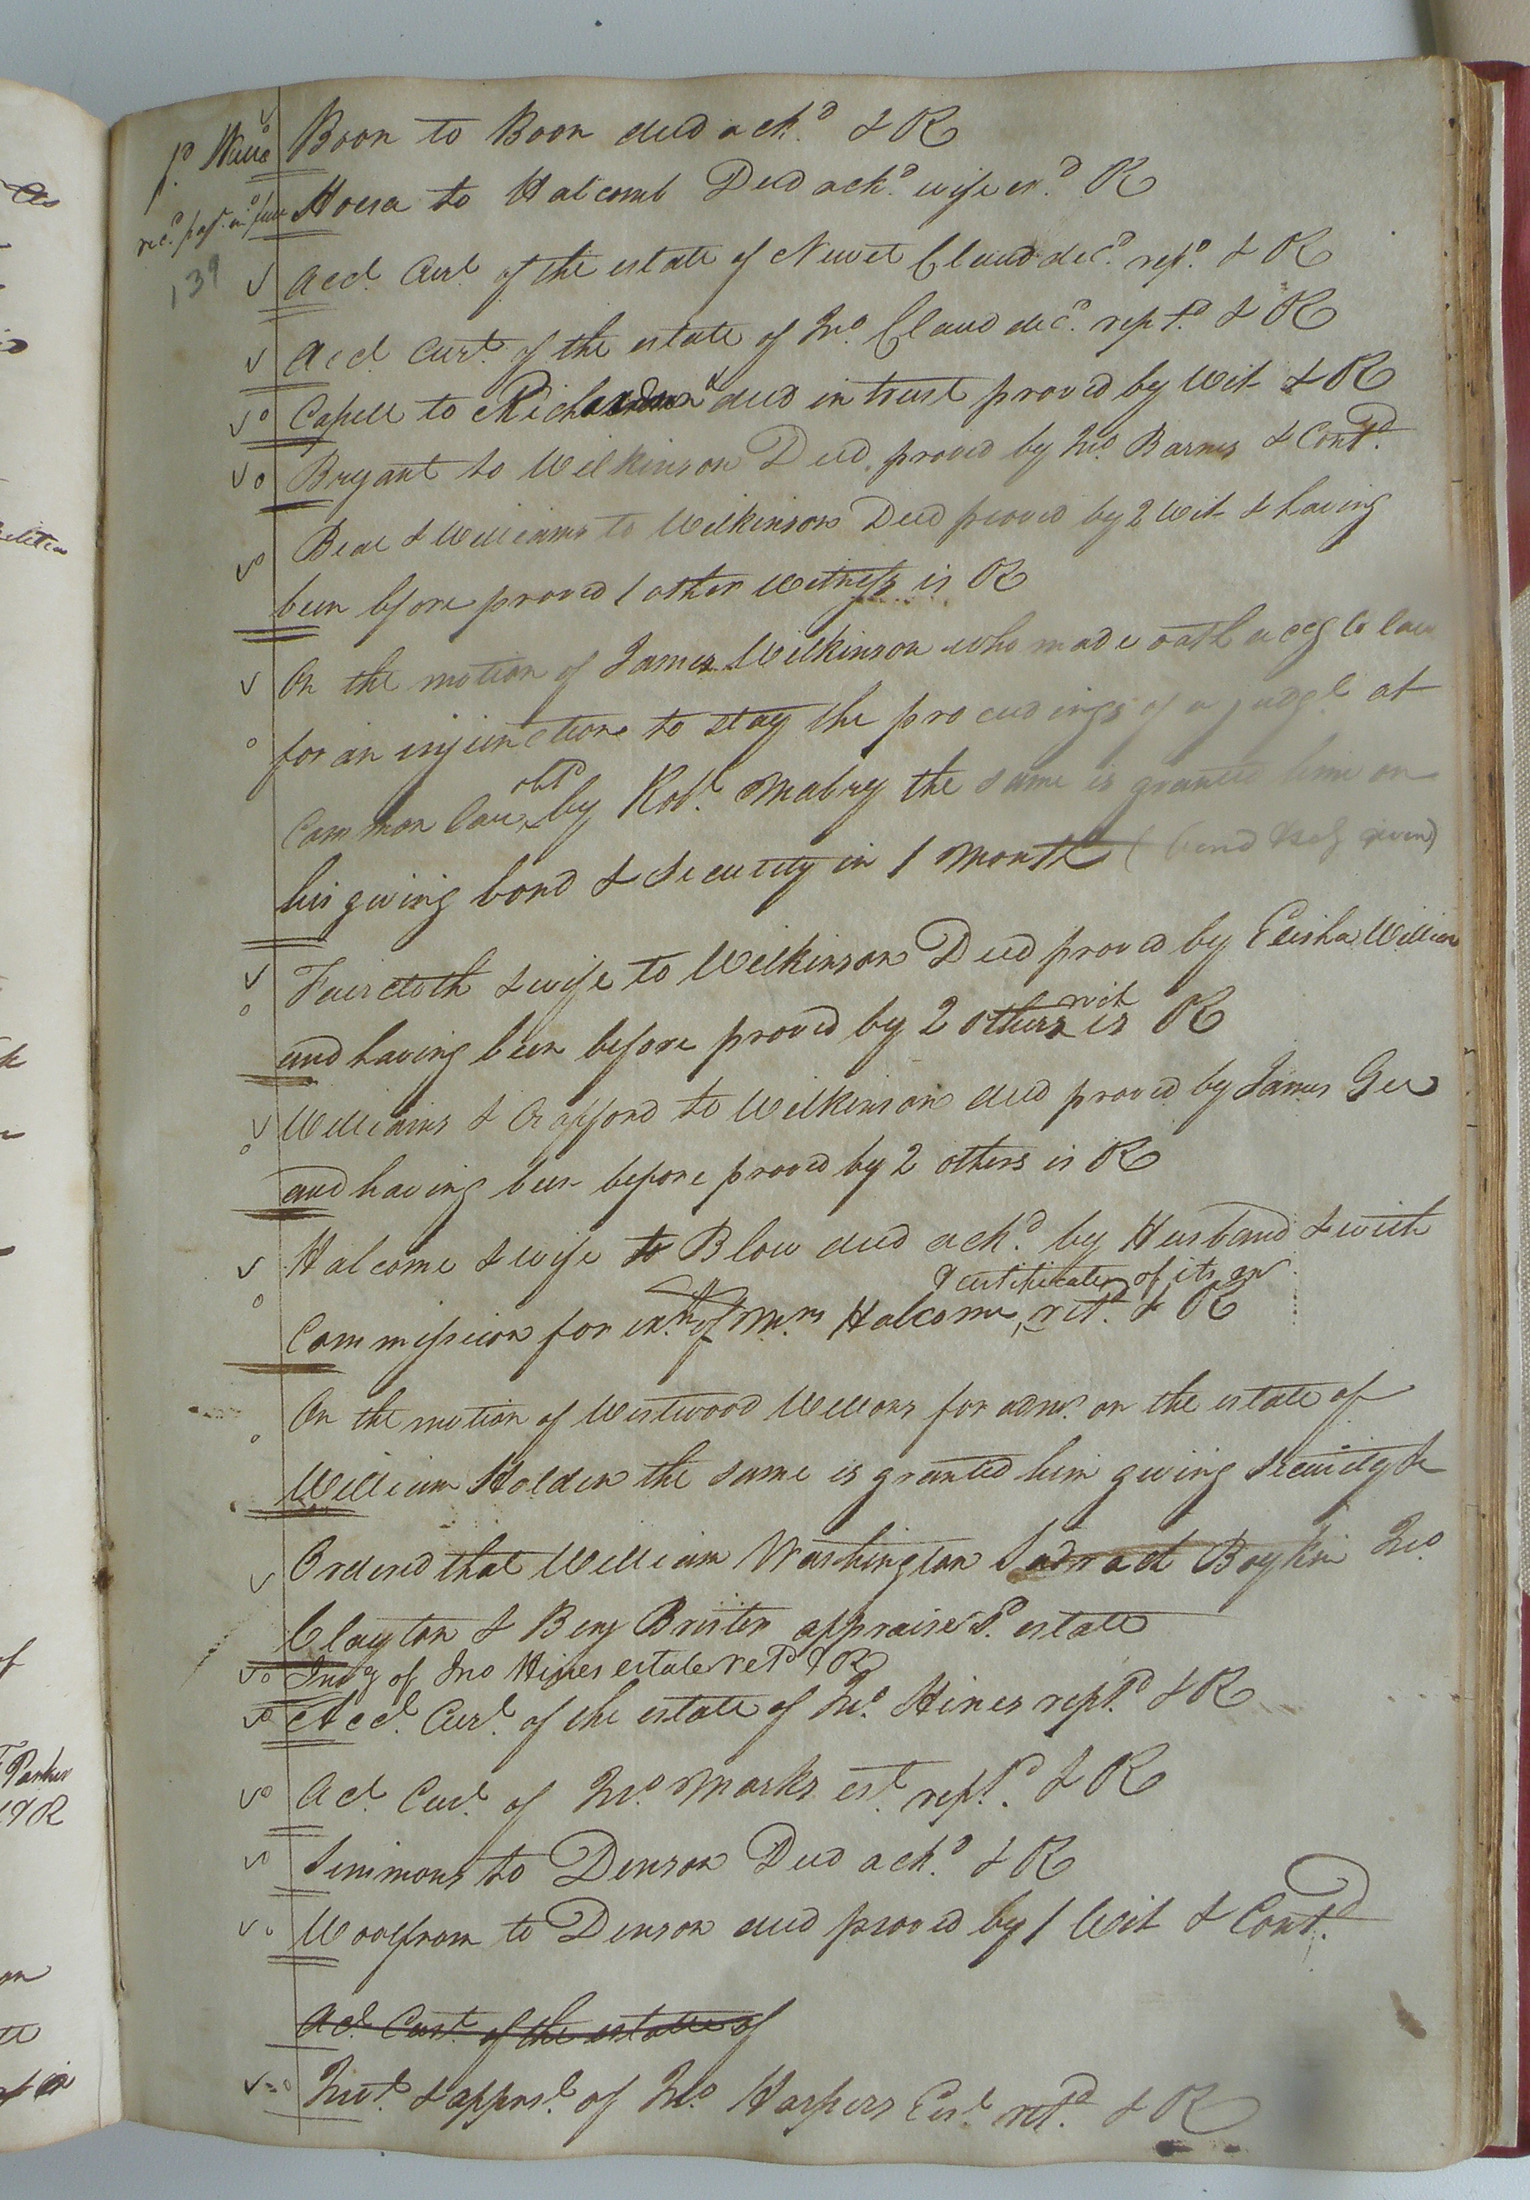 Boon to Boon deed ackd. & R
to Halcomb Deed ackd. wife exd. R
139
Acct. Curt. of the estate of Newet Claud decd. repd. & R
Acct. Curt. of the estate of Jno. Claud decd. reptd. & R
Capell to deed in trust proved by Wit & R
Bryant to Wilkinson Deed proved by Jno. Barnes & Contd.
Beal & Williams to Wilkinson Deed proved by 2 Wit & having
been before proved 1 other Witness is R
On the motion of James Wilkinson who made oath accg to law
for an injunction to stay the proceedings of a judgt. at
Common Law obtd by Robt. Mabry the same is granted him on
his giving bond & Security in 1 Month (bond given)
Faircloth & wife to Wilkinson Deed proved by Elisha William
and having been before proved by 2 others wit is R
Williams & Crafford to Wilkinson deed proved by James Gee
and having been before proved by 2 others is R
Halcome & wife to Blow deed ackd. by Husband & with
Commission for exn. of Mrs Halcome & certificate of its exn. retd. & R
On the motion of Westwood Wellons for admn. on the estate of
William Holden the same is granted him giving Security &c
Ordered that William Washington Sadrach Boykin Jno.
Clayton & Benj Brister appraise sd. estate
Invy of Jno Hines estate retd & R
Acct. Curt. of the estate of Jno. Hines reptd. & R
Act. Curt. of Jno. Marks est. reptd. & R
Simmons to Denson Deed ackd. & R
Woolfram to Denson deed proved by 1 Wit & Contd.
Act. Curt. of the estate of
Invt. & apprst. of Jno. Harpers Est. retd. & R